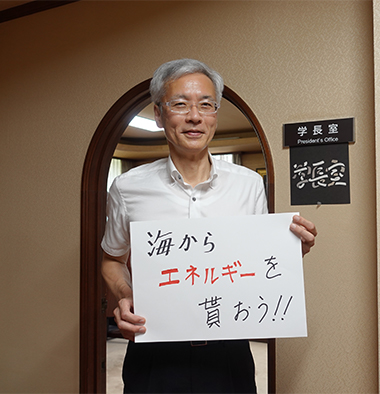 学長室
President's Office
学長室
海から
エネルギーを
貰おう!!